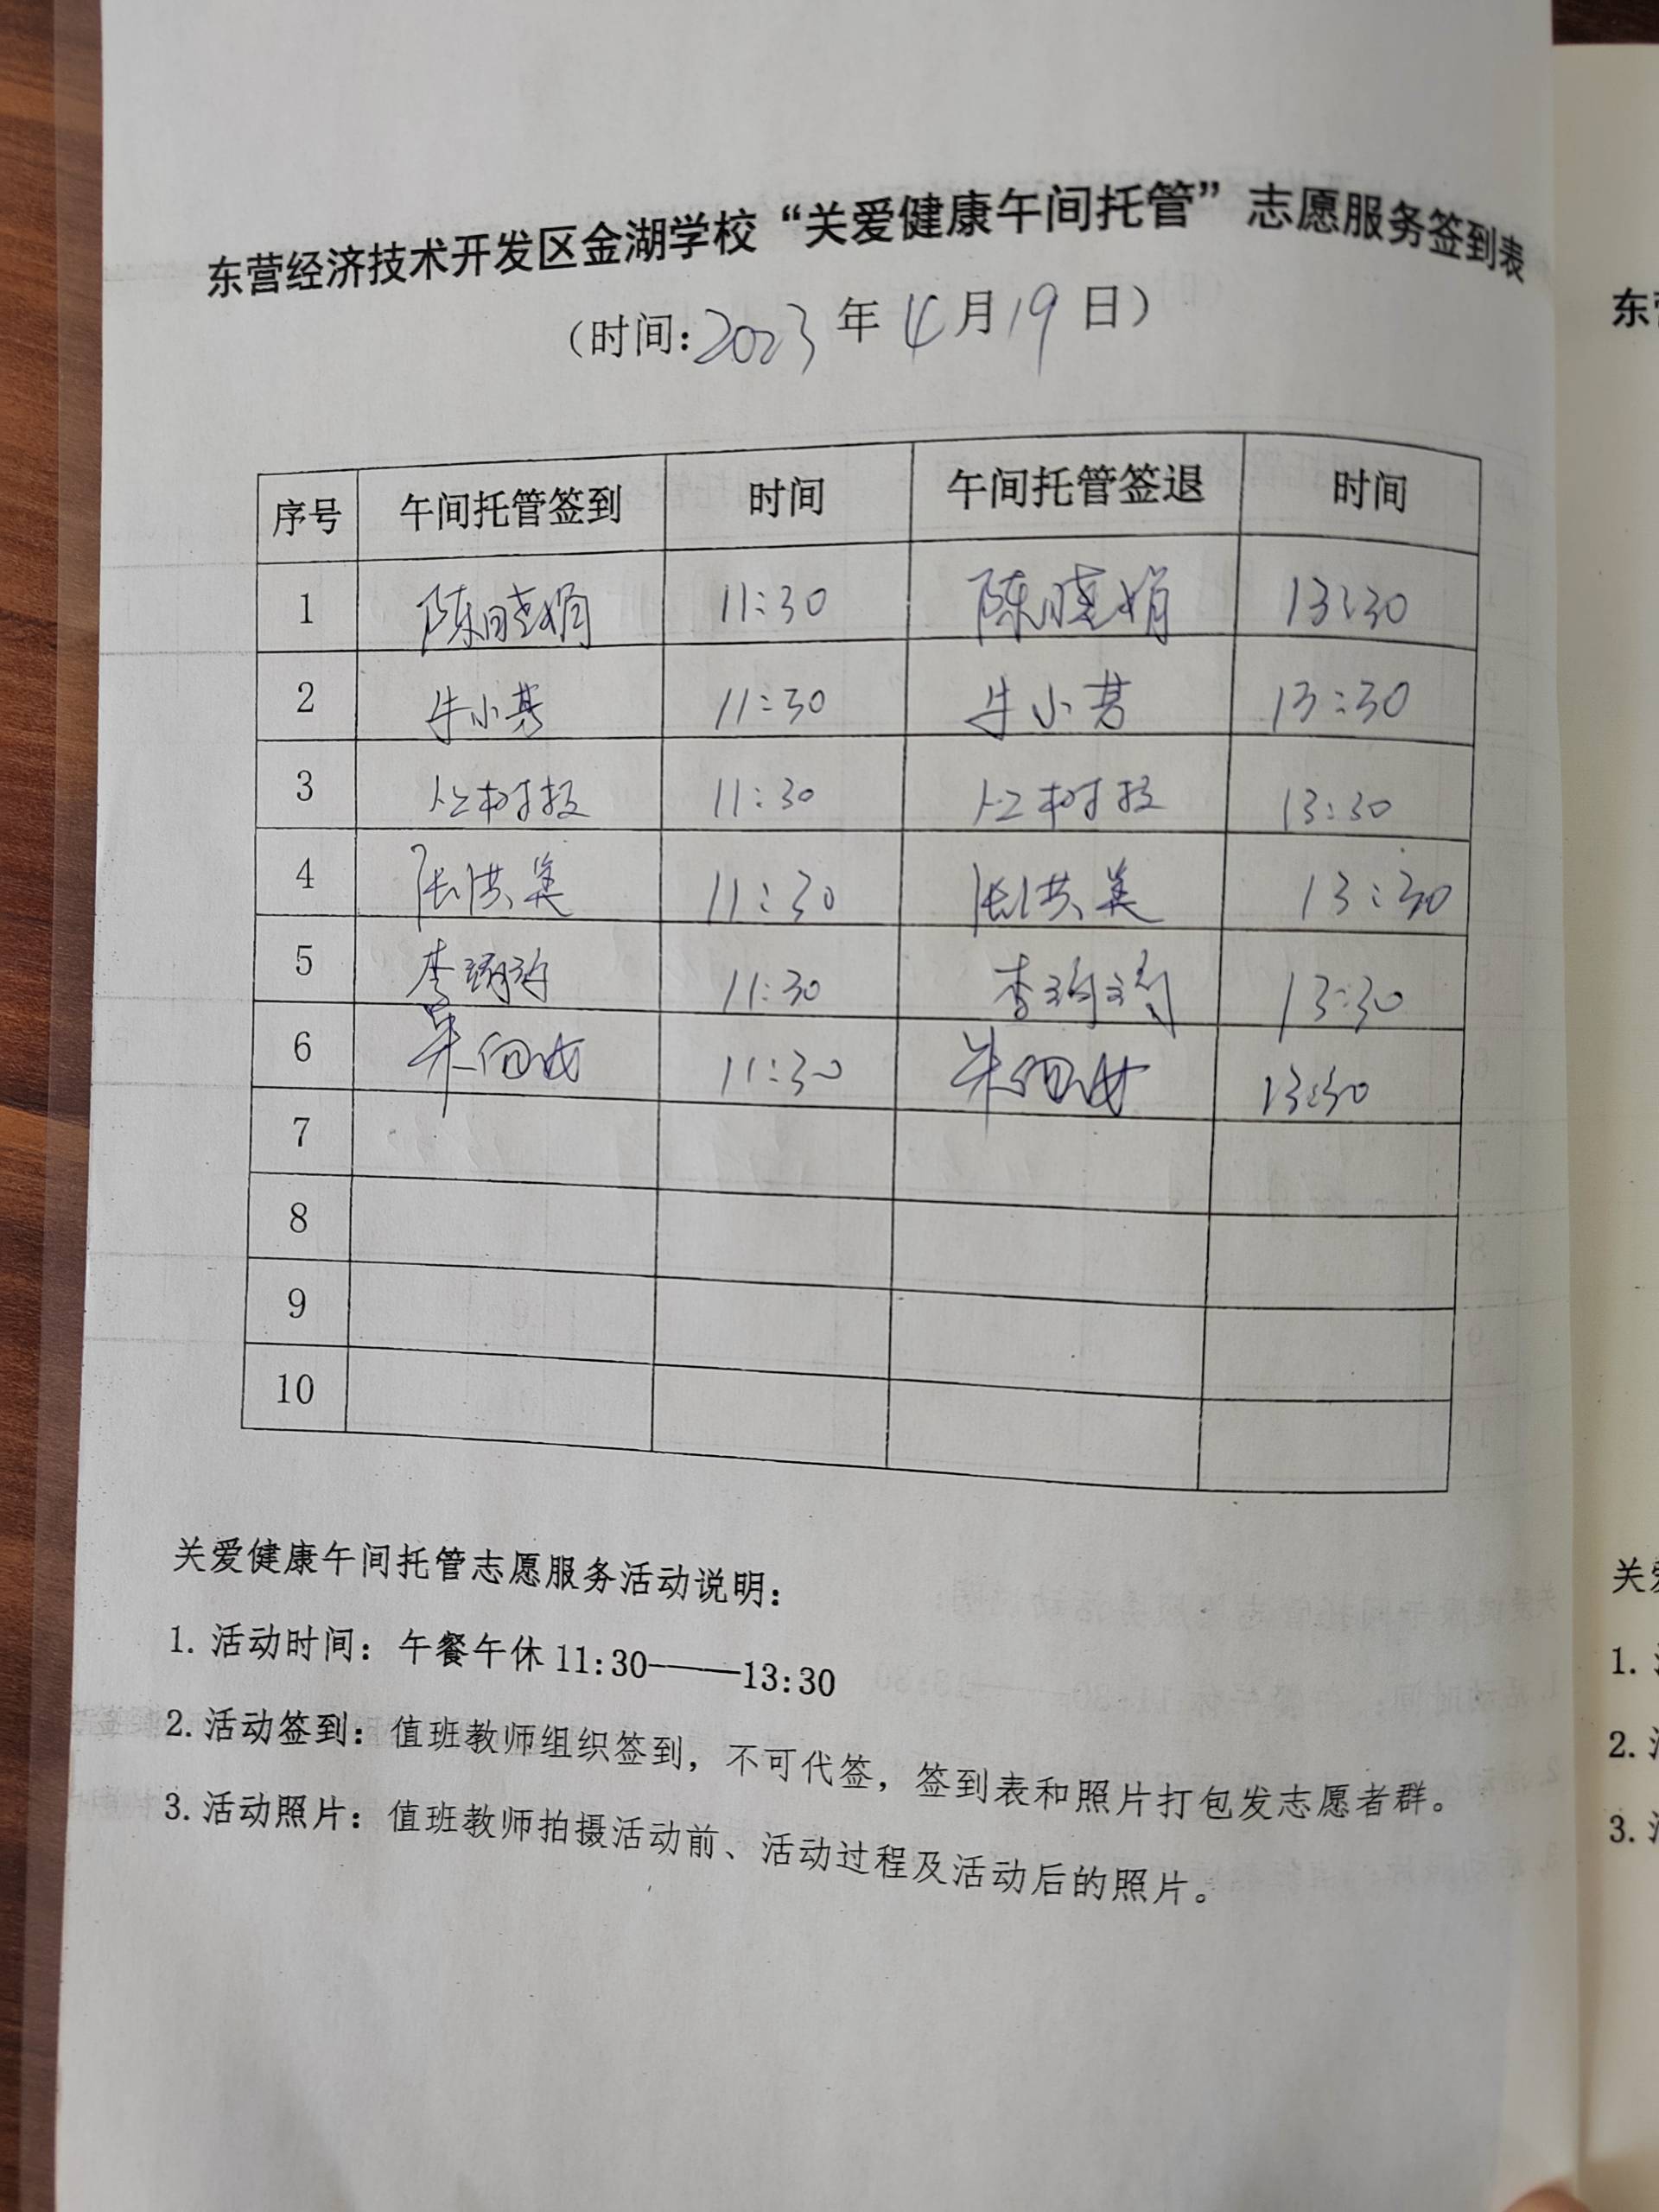 东营经济技术开发区金湖学校“关爱健康午间托管”志愿服务签到表
(时间:2023年4月19日)
序号 午间托管签到 时间 午间托管签退 时间
1 陈晓娟 11:30 陈晓娟 13:30
2 牛小芳 11:30 牛小芳 13:30
3 11:30 13:30
4 张洪美 11:30 张洪美 13:30
5 李 11:30 李 13:30
6 朱 11:30 朱 13:30
7
8
9
10
关爱健康午间托管志愿服务活动说明:
1. 活动时间: 午餐午休 11:30———13:30
2. 活动签到: 值班教师组织签到，不可代签，签到表和照片打包发志愿者群。
3. 活动照片: 值班教师拍摄活动前、活动过程及活动后的照片。
东
关
1.
2.
3.